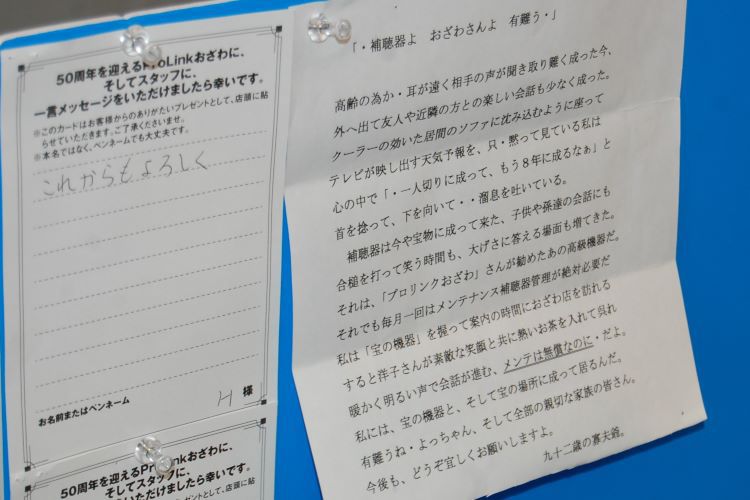 50周年を迎えるProLinkおざわに、
そしてスタッフに、
一言メッセージをいただけましたら幸いです。
※このカードはお客様からのありがたいプレゼントとして、店頭に貼
らせていただきます。ご了承くださいませ。
※本名ではなく、ペンネームでも大丈夫です。
これからもよろしく
お名前またはペンネーム
H 様
50周年を迎えるProLinkおざわに、
そしてスタッフに、
一言メッセージをいただけましたら幸いです。
プレゼントとして、店頭に貼
「・補聴器よ おざわさんよ 有難う・」
高齢の為か・耳が遠く相手の声が聞き取り難く成った今、
外へ出て友人や近隣の方との楽しい会話も少なく成った。
クーラーの効いた居間のソファに沈み込むように座って
テレビが映し出す天気予報を、只・黙って見ている私は
心の中で「・一人切りに成って、もう8年に成るなぁ」と
首を捻って、下を向いて・・溜息を吐いている。
補聴器は今や宝物に成って来た、子供や孫達の会話にも
合槌を打って笑う時間も、大げさに答える場面も増てきた。
それは、「プロリンクおざわ」さんが勧めたあの高級機器だ。
それでも毎月一回はメンテナンス補聴器管理が絶対必要だ
私は「宝の機器」を握って案内の時間におざわ店を訪れる
すると洋子さんが素敵な笑顔と共に熱いお茶を入れて呉れ
暖かく明るい声で会話が進む、メンテは無償なのに・だよ。
私には、宝の機器と、そして宝の場所に成って居るんだ。
有難うね・よっちゃん、そして全部の親切な家族の皆さん。
今後も、どうぞ宜しくお願いしますよ。
九十二歳の寡夫爺。